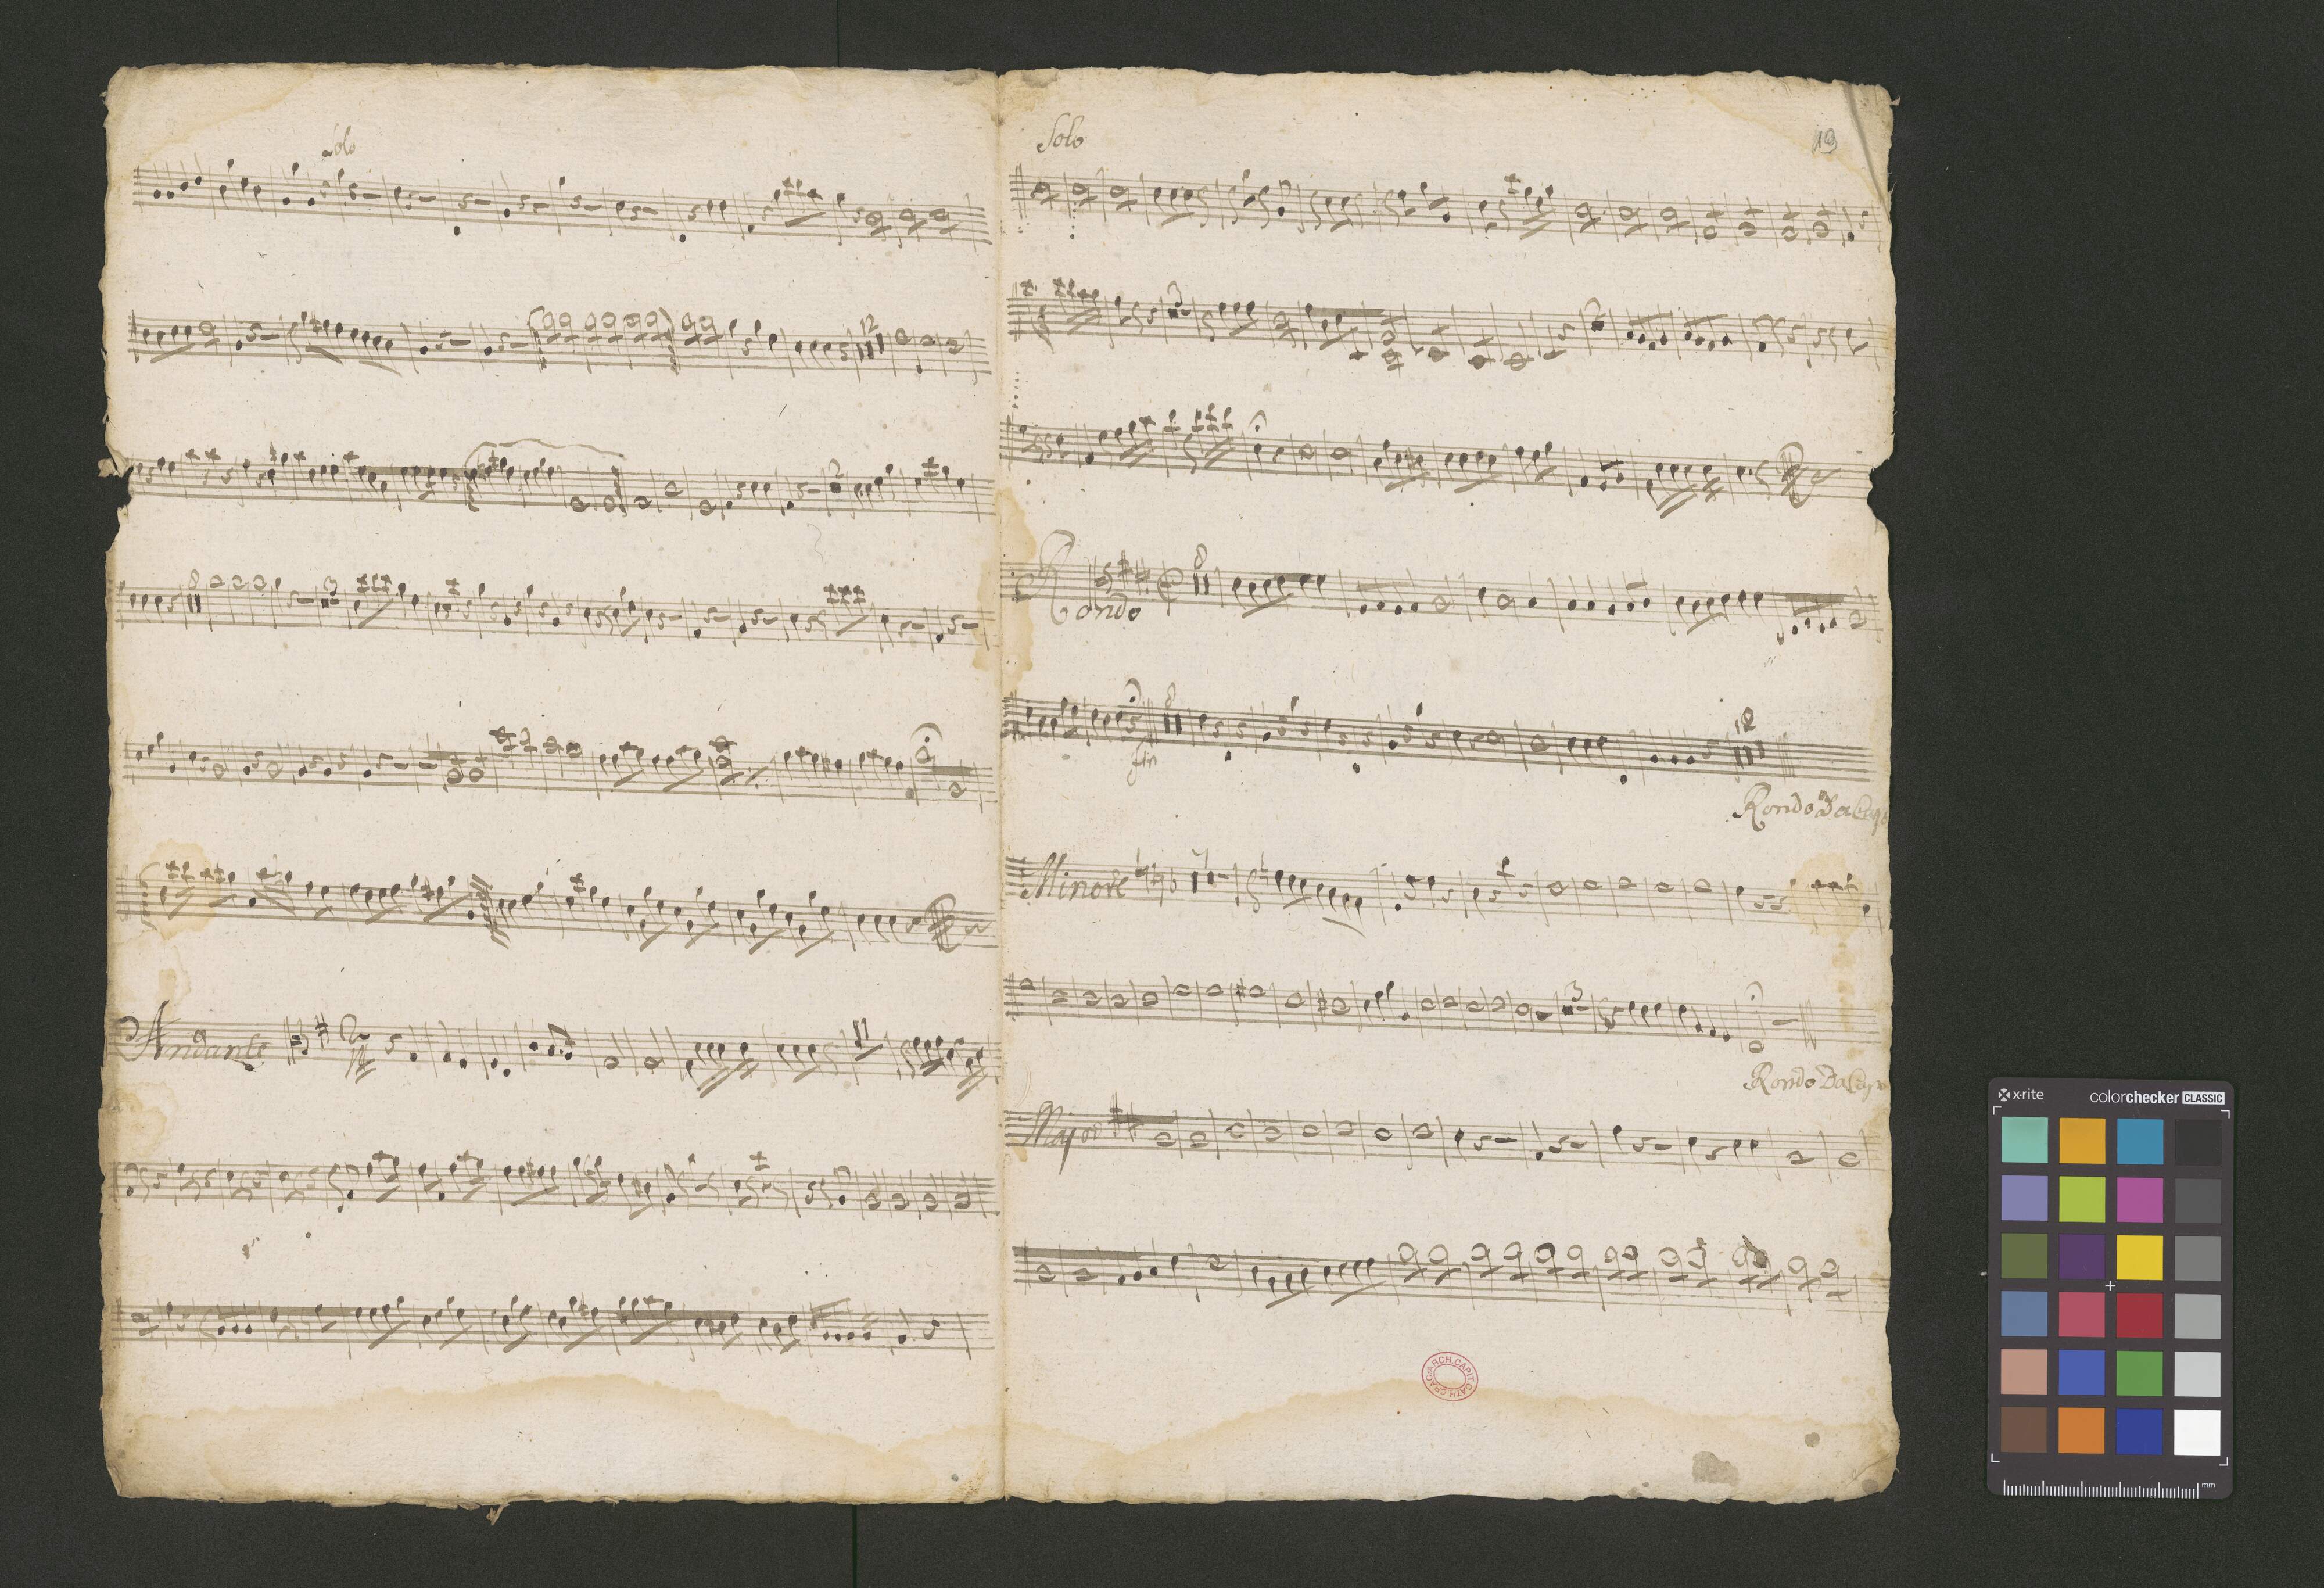 Solo
12
2
8
3
Andante
Solo
19
3
2
Rondo
8
fin
8
12
Rondo DaCapo
Minore
3
Rondo DaCapo
Major
ARCH.CAPIT.CATH.GRAC
x-rite
colorchecker CLASSIC
mm